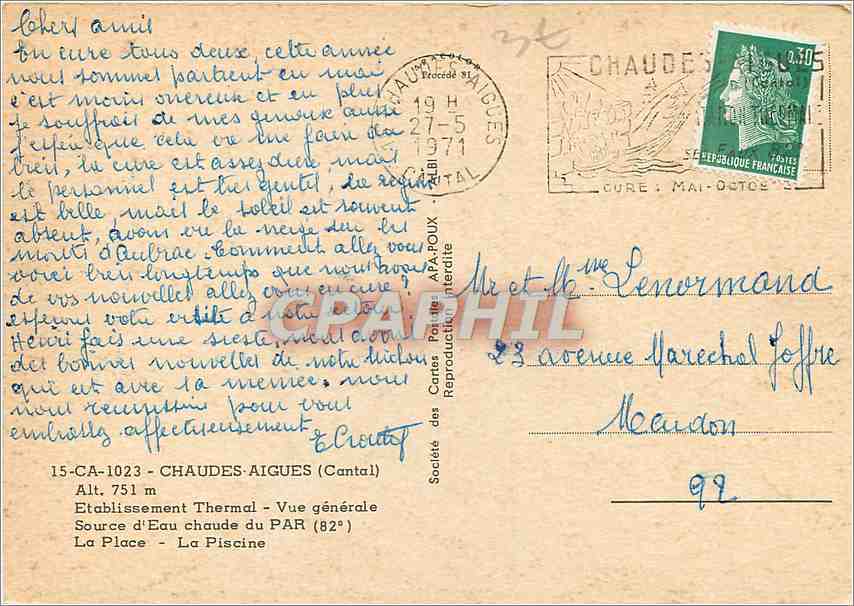 Chers amis
En cure tous deux, cette année
nous sommes partient en mai
c'est moins onereux et en plus
je souffrais de mes genoux aussi
j'espère que cela va me faire du
bien, la cure est assez dure, mais
le personnel est très gentil, la région
est belle, mais le soleil est souvent
absent, avons vu la neige sur les
monts d'Aubrac. Comment allez vous
voici bien longtemps que nous avons
de vos nouvelles allez vous en cure?
esperons votre visite à notre retour.
Henri fais une sieste, nous avons
des bonnes nouvelles de notre
qui est avec sa memée. nous
nous reunissons pour vous
embrasser affectueusement
15-CA-1023 - CHAUDES-AIGUES (Cantal)
Alt. 751 m
Etablissement Thermal - Vue générale
Source d'Eau chaude du PAR (82°)
La Place - La Piscine
Société des Cartes Postales APA-POUX - ALBI
Reproduction interdite
Procédé 81
CHAUDES-AIGUES
19 H
27-5
1971
CANTAL
CHAUDES
CURE : MAI-OCTOB
0,30
POSTES
REPUBLIQUE FRANÇAISE
Mr et Mme Lenormand
23 avenue Marechal Joffre
Meudon
92
CPAPHIL